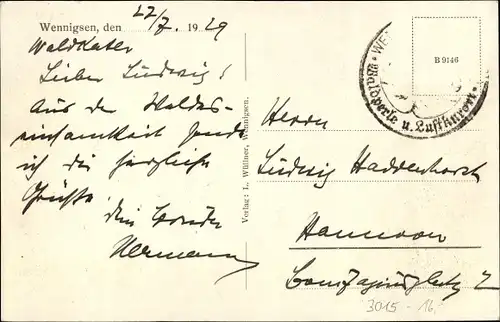 Wennigsen, den 22/7. 1929
Waldkater
Lieber Ludwig!
Aus der Waldes-
einsamkeit sende
ich die herzlichsten
Grüße
Dein Bruder
Hermann
Verlag: L. Wüllner, Wennigsen.
B 9146
Waldperle u. Luftkurort
Herrn
Ludwig Haddenhorst
Hannover
3015 - 16